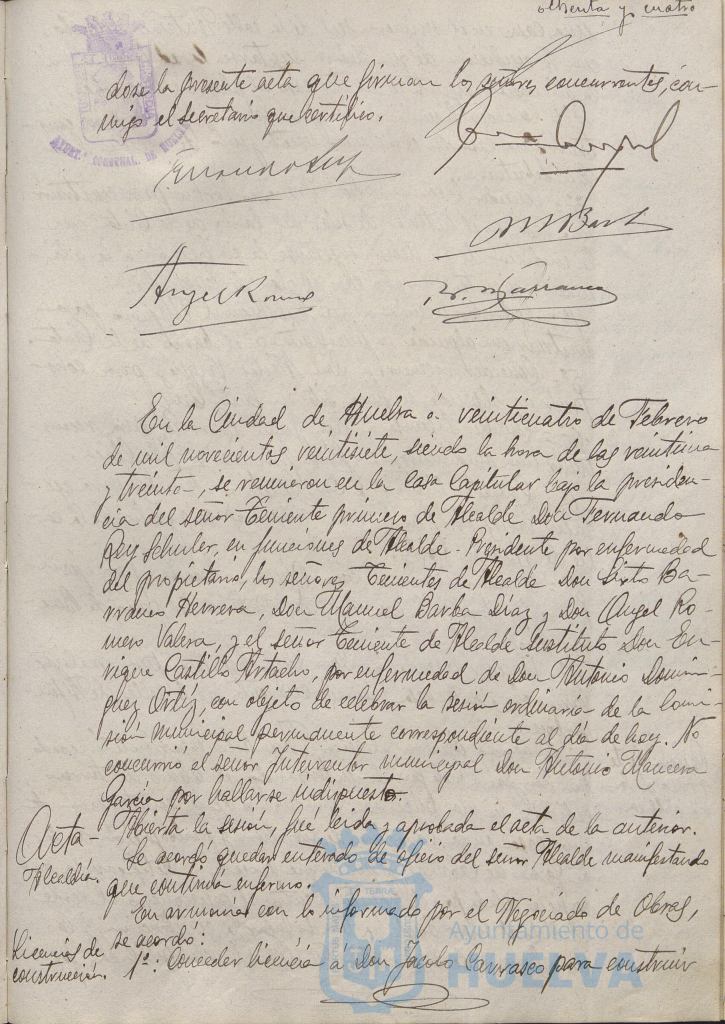 ochenta y cuatro
dose la presente acta que firman los señores concurrentes, con-
migo el secretario que certifico.
AYUNT. CONSTNAL. DE HUELVA
Angel Romero
M Barba
En la Ciudad de Huelva á veinticuatro de Febrero
de mil novecientos veintisiete, siendo la hora de las veintiuna
y treinta, se reunieron en la Casa Capitular bajo la presiden-
cia del señor Teniente primero de Alcalde Don Fernando
Rey Schuler, en funciones de Alcalde-Presidente por enfermedad
del propietario, los señores Tenientes de Alcalde Don Sixto Ba-
rranco Herrera, Don Manuel Barba Díaz y Don Angel Ro-
mero Valera, y el señor Teniente de Alcalde Sustituto Don En-
rique Castillo Artacho, por enfermedad de Don Antonio Domín-
guez Ortiz, con objeto de celebrar la sesión ordinaria de la Comi-
sión municipal permanente correspondiente al día de hoy. No
concurrió el señor Interventor municipal Don Antonio Mancera
García por hallarse indispuesto.
Acta- Abierta la sesión, fué leida y aprobada el acta de la anterior.
Alcaldía. Se acordó quedar enterado de oficio del señor Alcalde manifestando
que continúa enfermo.
En armonía con lo informado por el Negociado de Obras,
Licencias de se acordó:
construcción. 1º: Conceder licencia á Don Jacobo Carrasco para construir
Ayuntamiento de
HUELVA